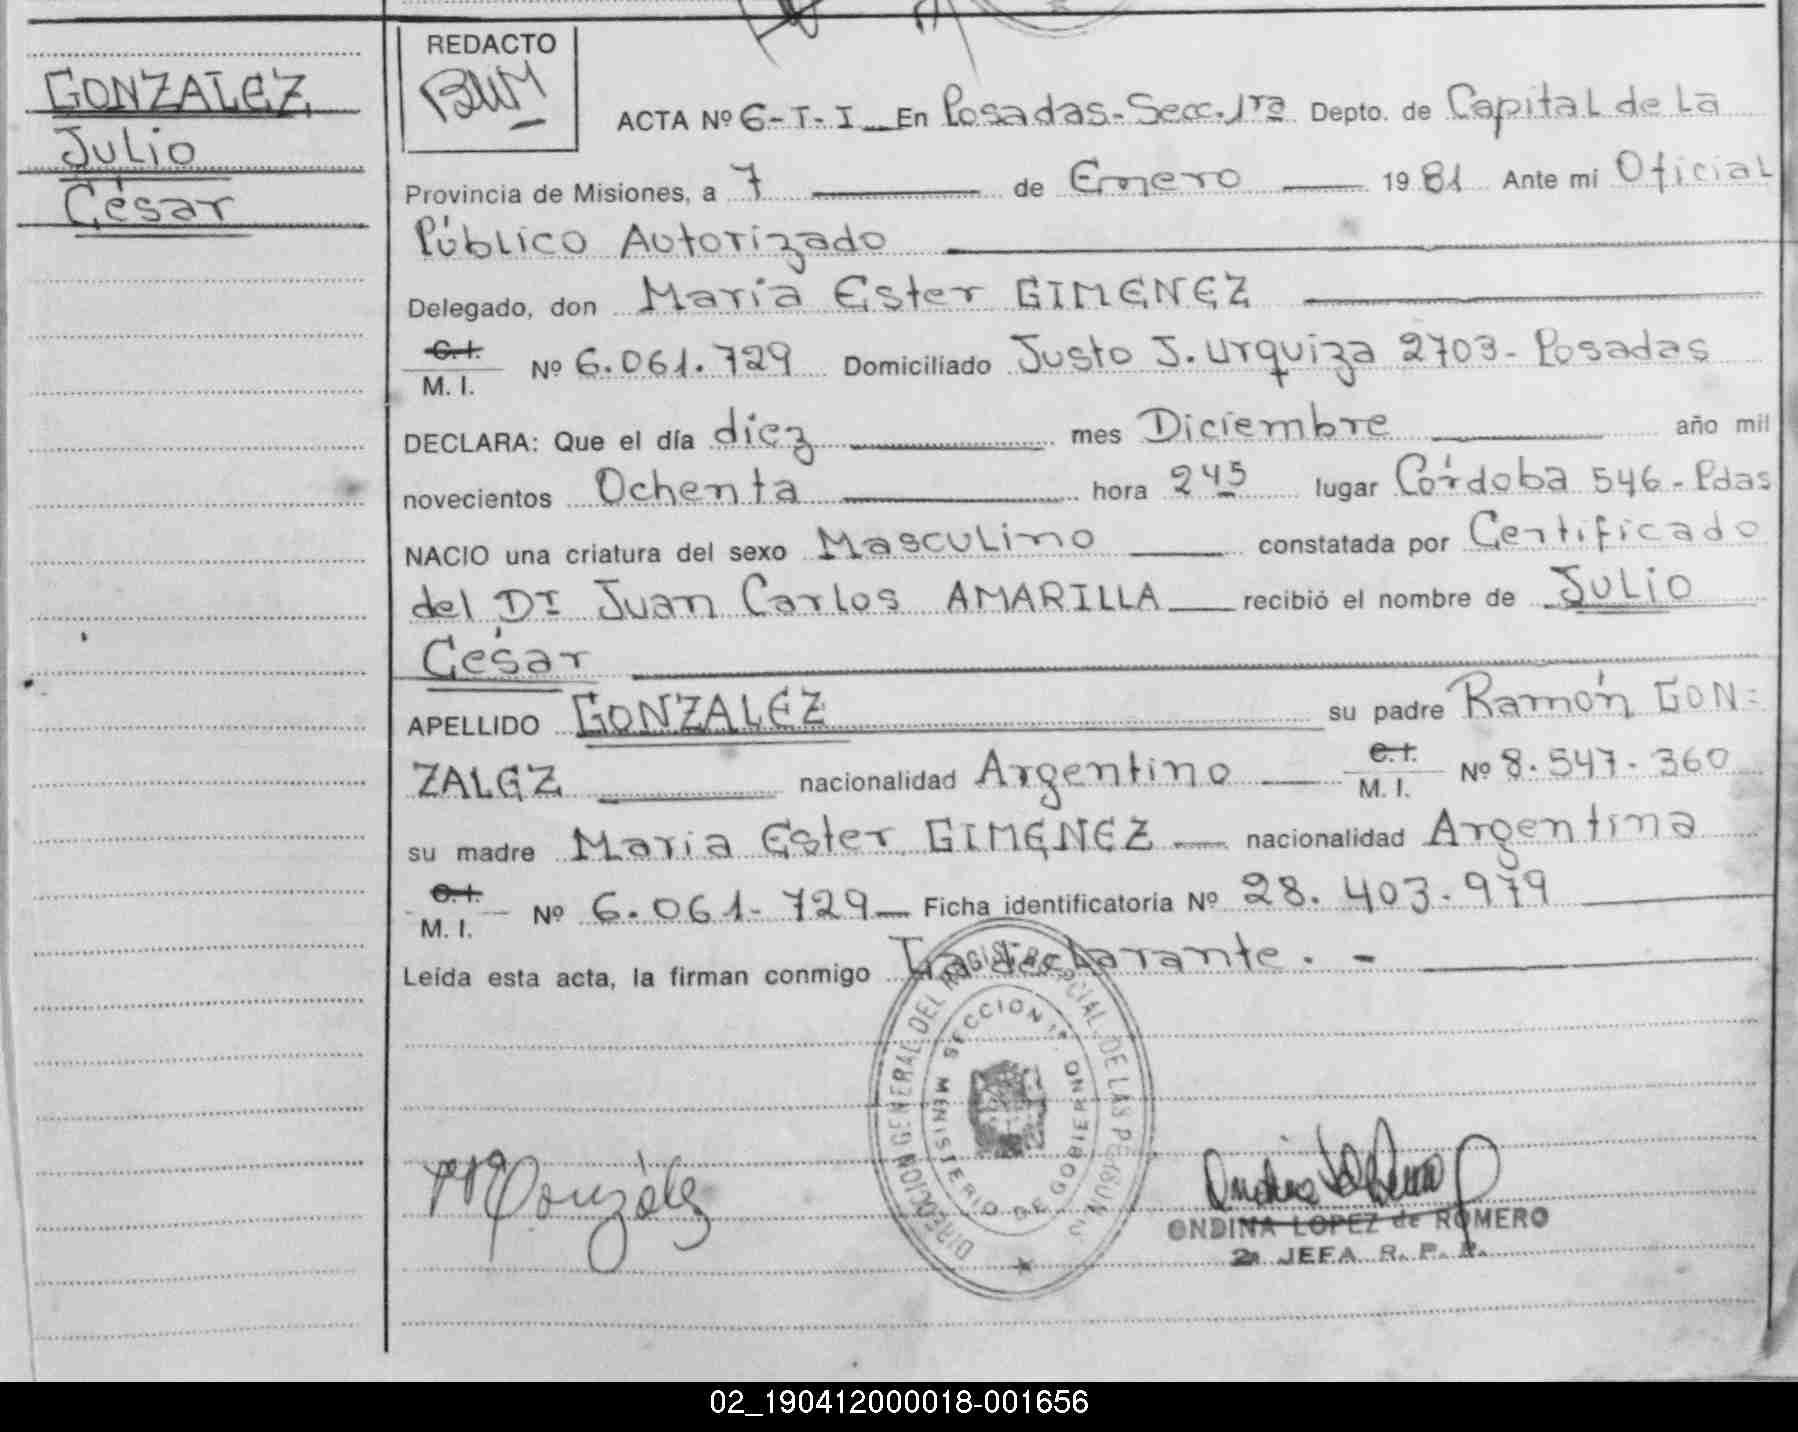 GONZALEZ
Julio
César
REDACTO
ACTA Nº 6-T-I En Posadas-Secc.1ra Depto. de Capital de La
Provincia de Misiones, a 7 de Enero 1981 Ante mi Oficial
Público Autorizado
Delegado, don Maria Ester GIMENEZ
C.I.
M. I. Nº 6.061.729 Domiciliado Justo J. Urquiza 2703- Posadas
DECLARA: Que el día diez mes Diciembre año mil
novecientos Ochenta hora 2 45 lugar Córdoba 546- Pdas
NACIO una criatura del sexo Masculino constatada por Certificado
del Dr Juan Carlos AMARILLA recibió el nombre de Julio
César
APELLIDO GONZALEZ su padre Ramón GON=
ZALEZ nacionalidad Argentino C.I. M. I. Nº 8.547.360
su madre Maria Ester GIMENEZ nacionalidad Argentina
C.I.
M. I. Nº 6.061-729 Ficha identificatoria Nº 28.403.979
Leída esta acta, la firman conmigo La declarante.-
DIRECCION GENERAL DEL REGISTRO PCIAL. DE LAS PERSONAS
SECCION 1ª
MINISTERIO DE GOBIERNO
González
ONDINA LOPEZ de ROMERO
2ª JEFA R. P. P.
02_190412000018-001656